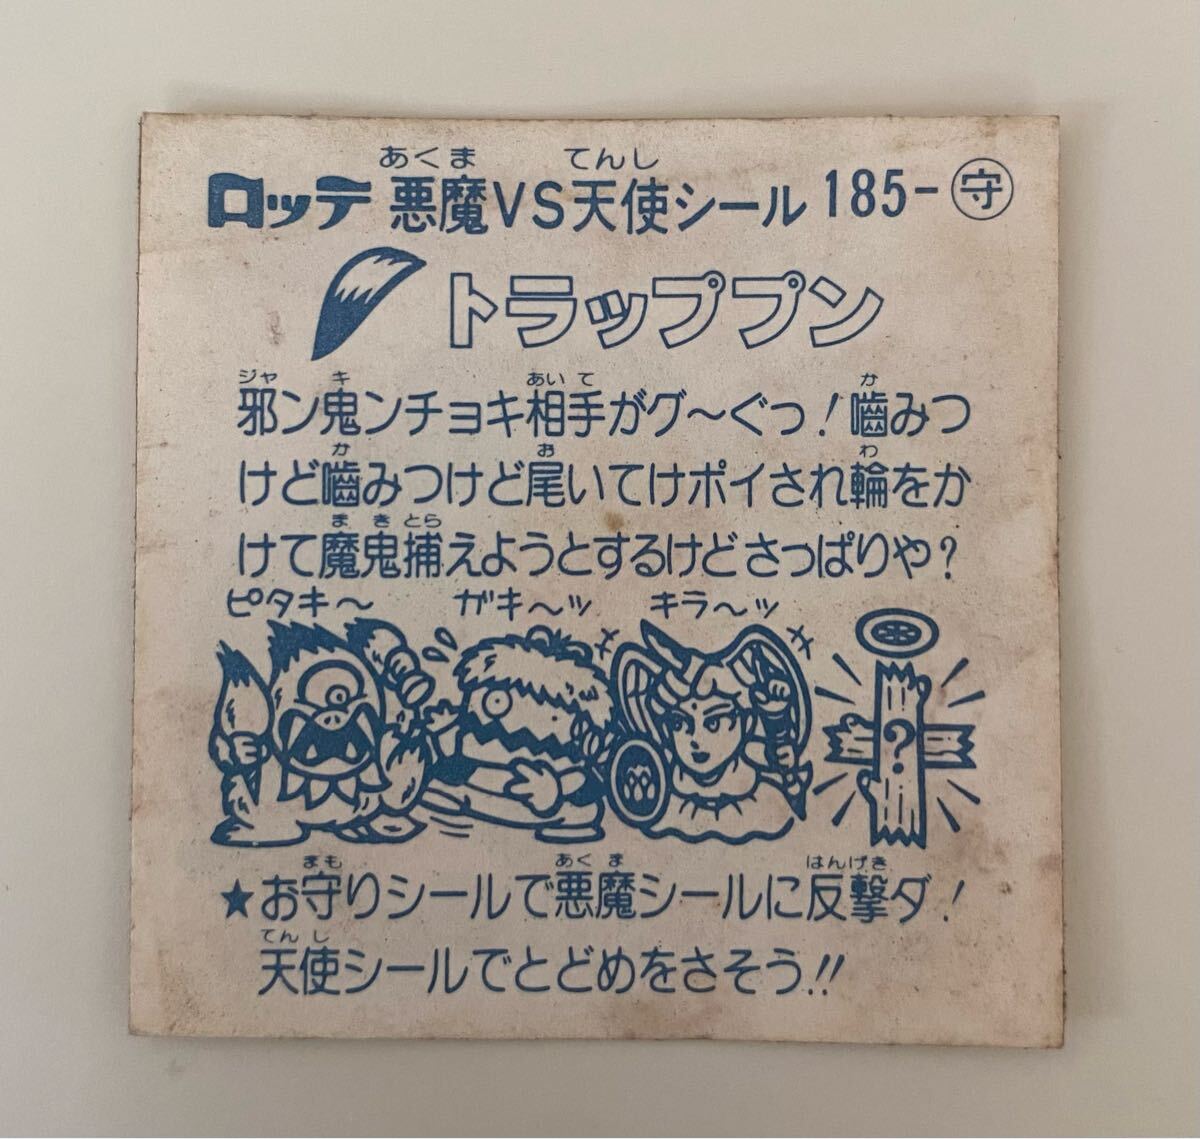 ロッテ 悪魔VS天使シール 185-守
トラッププン
邪ン鬼ンチョキ相手がグ〜ぐっ!嚙みつ
けど嚙みつけど尾いてけポイされ輪をか
けて魔鬼捕えようとするけどさっぱりや?
ピタキ〜 ガキ〜ッ キラ〜ッ
?
★お守りシールで悪魔シールに反撃ダ!
天使シールでとどめをさそう!!